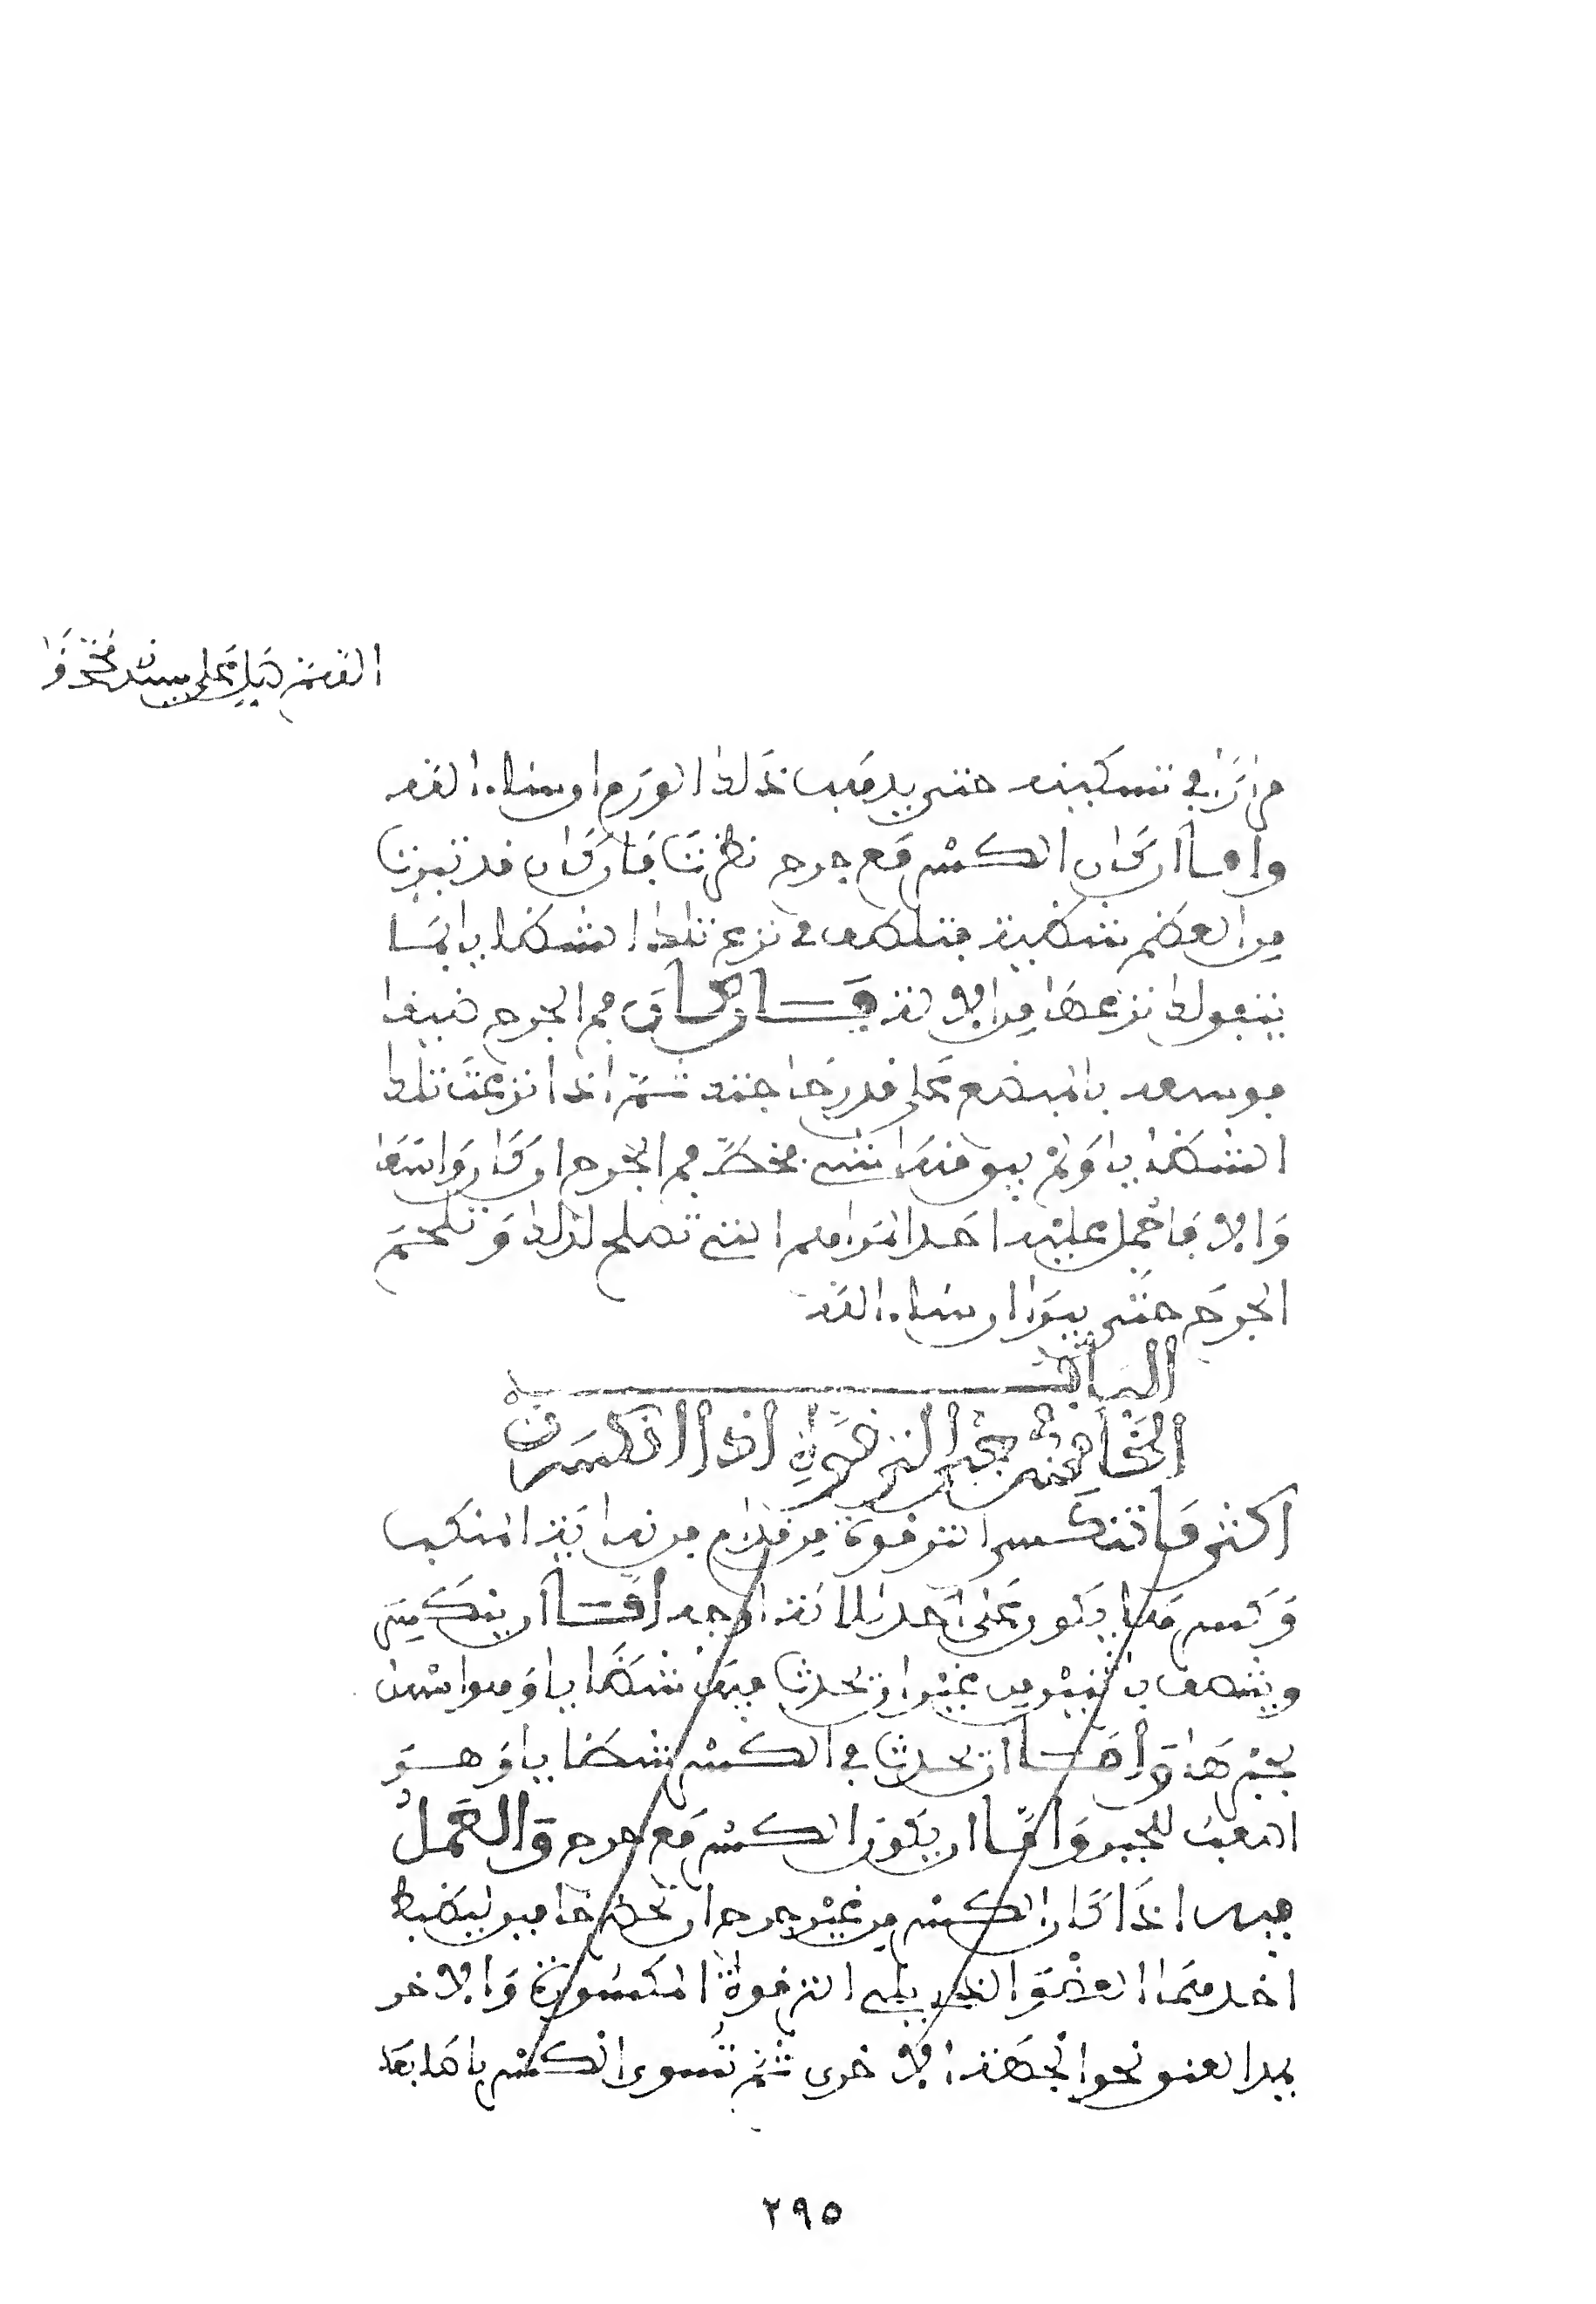 مرارا في تسكينه حتى يذهب ذلك الورم ان شاء الله
واما ان كان الكسر مع جرح نظرت فان كان قد تبرت
من العظم شظية فتلطف في نزع تلك الشظايا بما
ينبغي لك نزعها من الالة فان كان فم الجرح ضيقا
فوسعه بالمبضع على قدر حاجتك ثم اذا نزعت تلك
الشظايا ولم يبق منها شي فخط فم الجرح ان كان واسعا
والا فاحمل عليه احد المراهم التي تصلح لذلك وتلحم
الجرح حتى يبرا ان شاء الله
الباب
الخامس في جبر الترقوة اذا انكسرت
اكثر ما تنكسر الترقوة من قدام من ناحية المنكب
وكسرها يكون على احد ثلاثة اوجه اما ان ينكسر
وينقصف باثنين من غير ان تحدث فيها شظايا وهو اسهل
لجبرها واما ان تحدث في الكسر شظايا وهو
اصعب للجبر واما ان يكون الكسر مع جرح والعمل
فيه اذا كان الكسر من غير جرح ان تحضر خادمين ليضبط
احدهما العضد الذي يلي الترقوة المكسورة والاخر
يمد العنق نحو الجهة الاخرى ثم تسوي الكسر باصابعك
٢٩٥